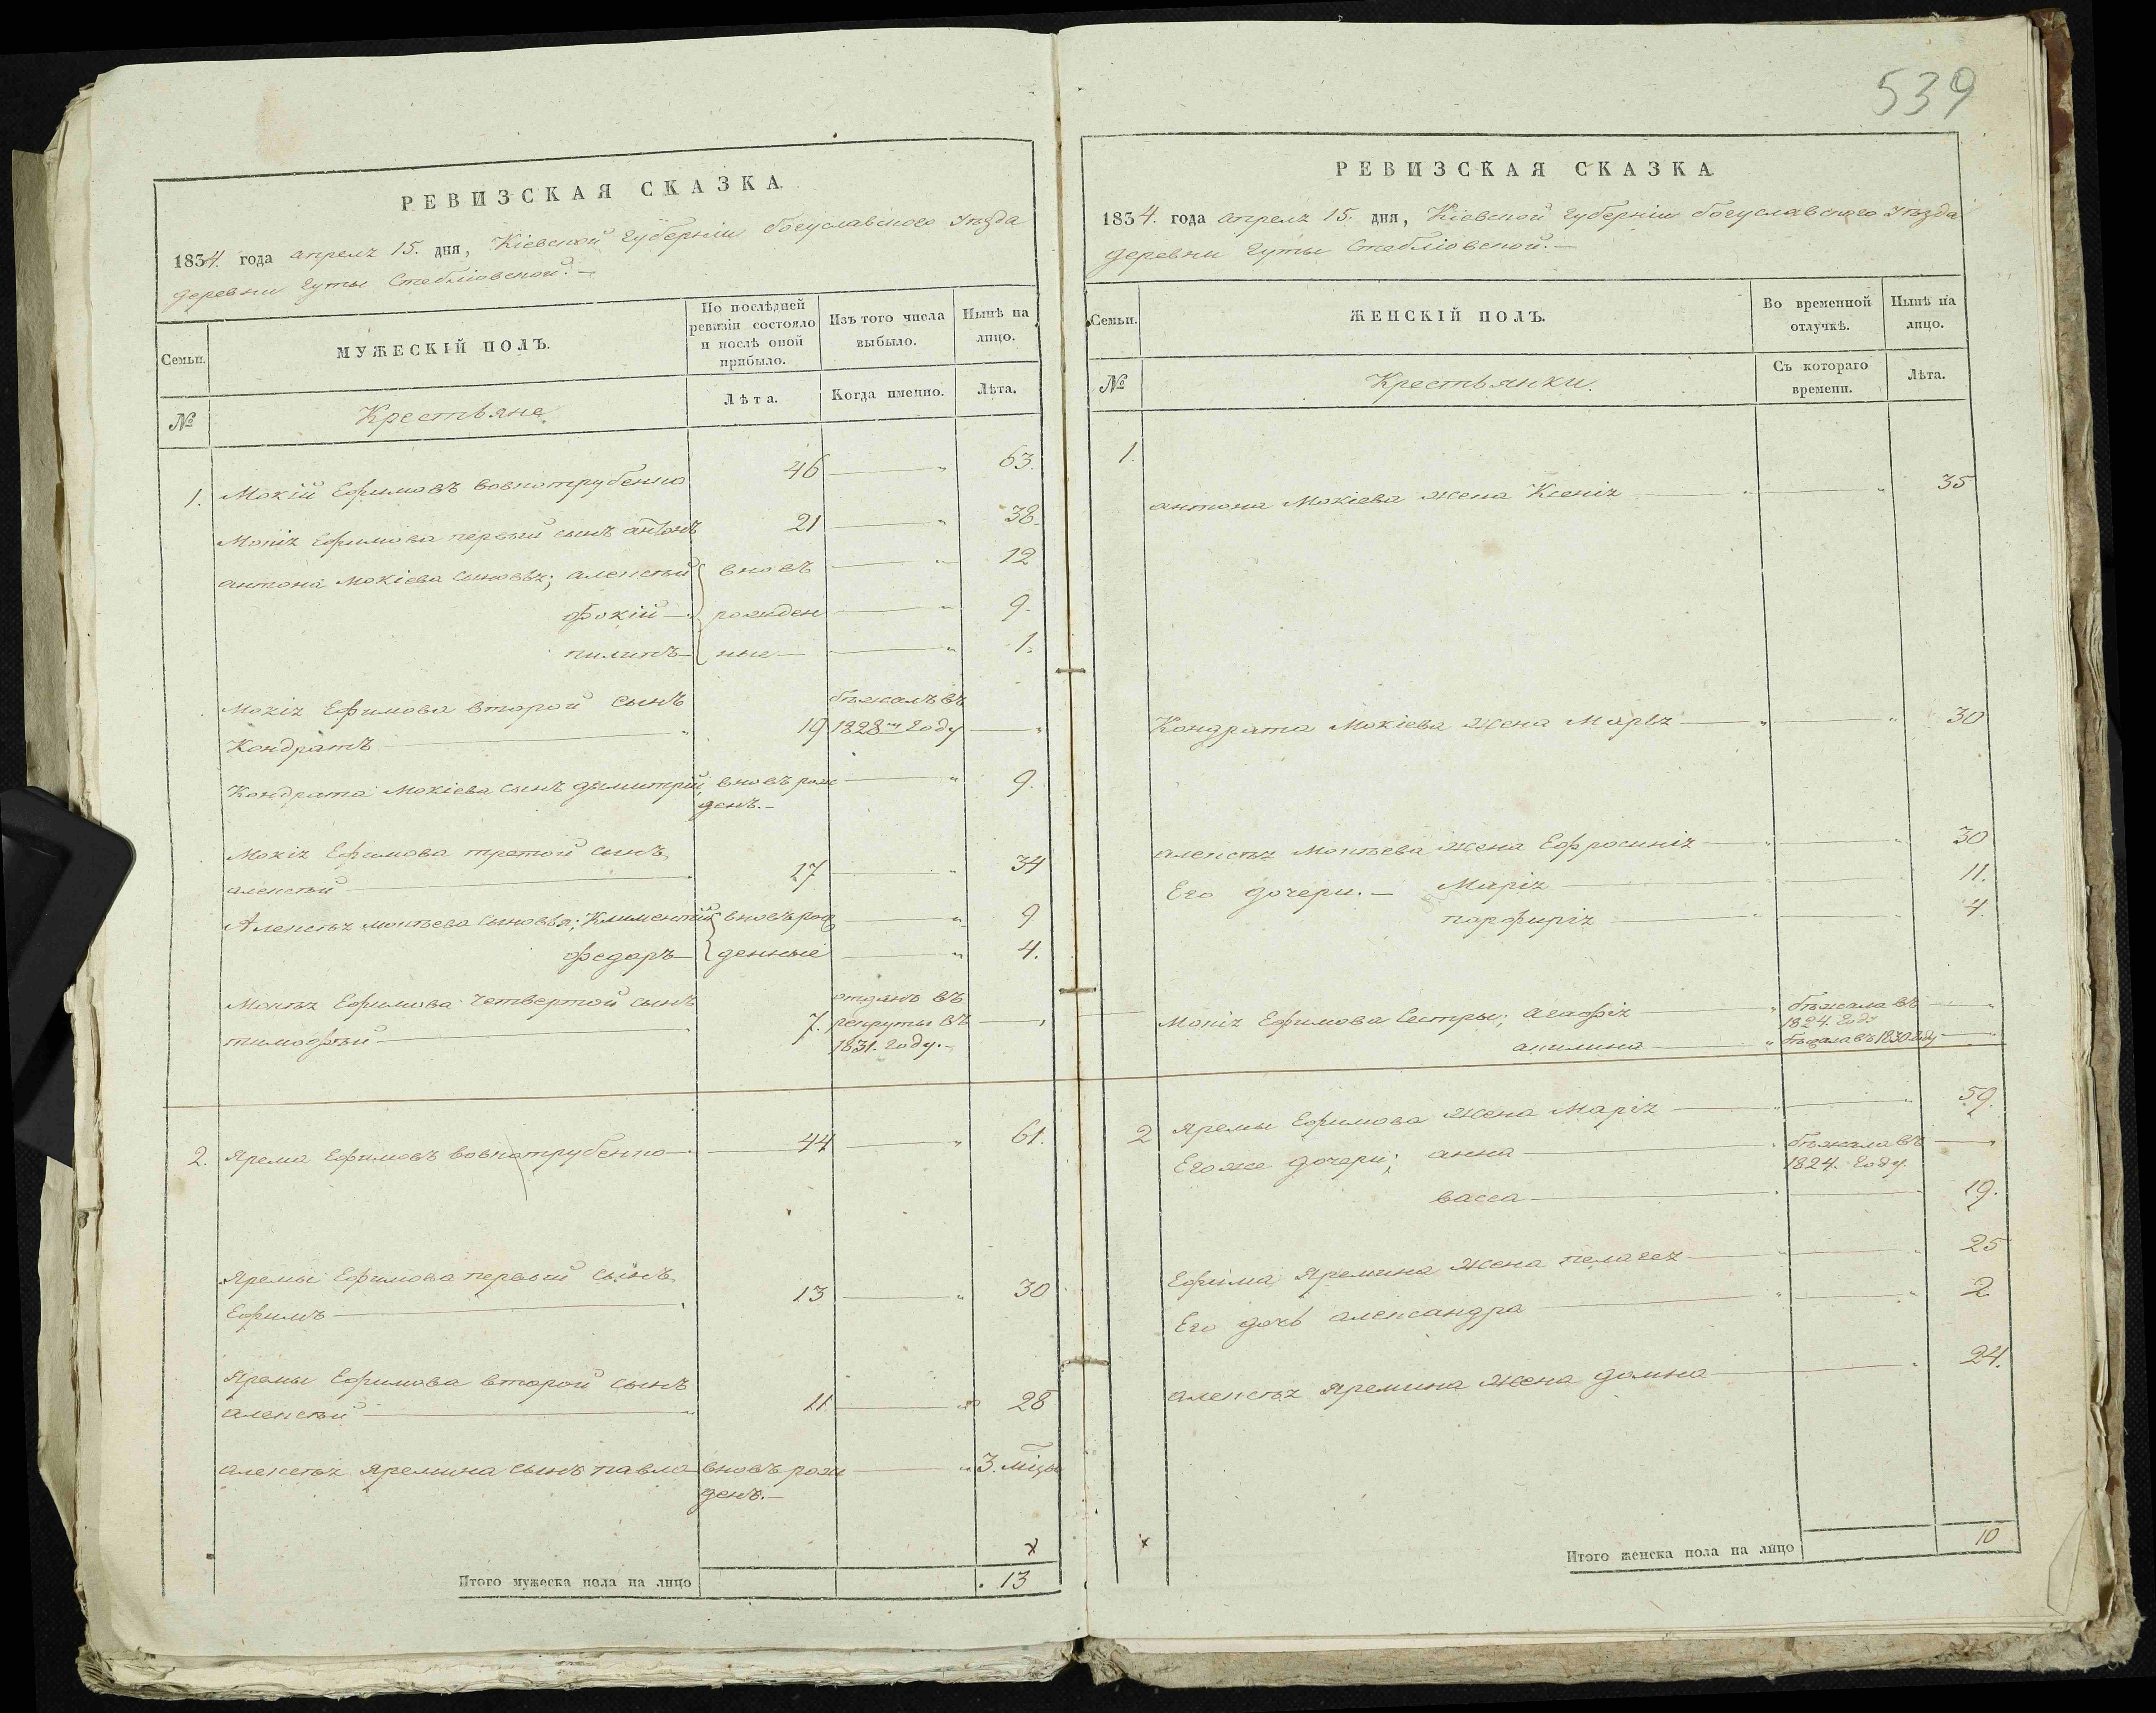 539
РЕВИЗСКАЯ СКАЗКА
1834. года апреля 15. дня, Кіевской губерніи богуславского уѣзда
деревни гуты Стебліовской.-
Семьи.
МУЖЕСКІЙ ПОЛЪ.
По послѣдней
ревизіи состояло
и послѣ оной
прибыло.
Изъ того числа
выбыло.
Нынѣ на
лицо.
№
Крестьяне
Лѣта.
Когда именно.
Лѣта.
1. Мокій Ефимовъ вовкотрубенко 46 — " 63.
Мокія Ефимова первый сынъ антонъ 21 — " 38.
антона Мокіева сыновья; алексѣй вновь — " 12
фокій — рожден — " 9.
пилипъ — ные — — " 1.
Мокія Ефимова второй сынъ бѣжалъ въ
Кондратъ — " 19 1828м году — "
Кондрата Мокіева сынъ дымитрій вновь рож — " 9.
денъ.-
Мокія Ефимова третой сынъ
алексѣй — 17 — " 34
Алексѣя мокѣева сыновья; Климентій вновь рож — " 9
федоръ — денные — " 4.
Мокѣя Ефимова четвертой сынъ отданъ въ
тимофѣй — 7. рекруты въ — "
1831. году.-
2. Ярема Ефимовъ вовкотрубенко — 44 — " 61.
Яремы Ефимова первый сынъ
Ефимъ — " 13 — " 30
Яремы Ефимова второй сынъ
алексѣй — " 11 — " 28
алексѣя яремина сынъ павло вновь рож — " 3. міцы
денъ.-
х
Итого мужеска пола на лицо . 13
РЕВИЗСКАЯ СКАЗКА
1834. года апреля 15. дня, Кіевской губерніи богуславского уѣзда
деревни гуты Стебліовской.-
Семьи.
ЖЕНСКІЙ ПОЛЪ.
Во временной
отлучкѣ.
Нынѣ на
лицо.
№
Крестьянки.
Съ котораго
времени.
Лѣта.
1.
антона Мокіева жена Ксенія — " — " 35
Кондрата Мокіева жена Марья — " — " 30
алексѣя Мокѣева жена Ефросинія — " — " 30
Его дочери.- Марія — " — " 11.
парфирія — " — " 4.
Мокія Ефимова Сестры; агафія — " бѣжала въ — "
1824. году
акилина — " бѣжала въ 1830 году — "
2 яремы Ефимова жена Марія — " — " 59.
Егоже дочери; анна — " бѣжала въ — "
1824. году.
васса — " — " 19.
Ефима Яремина жена пелагея — " — " 25
Его дочь александра — " — " 2
алексѣя яремина жена домна — " 24.
х
Итого женска пола на лицо 10